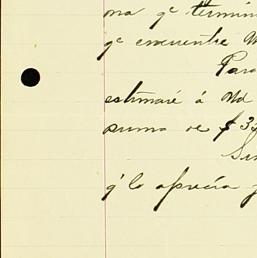 ma qe termin
qe encuentre M
Para
estimaré á Md
suma de $ 35
Su
q' lo aprecia y